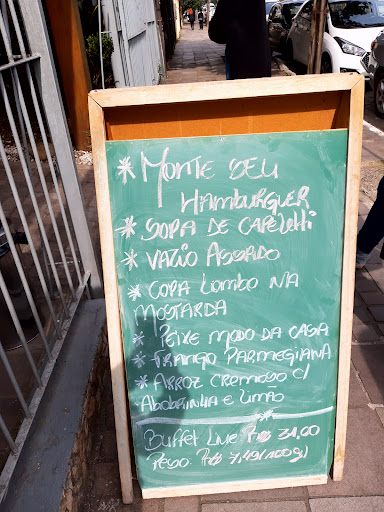 * MONTE SEU
HAMBURGUER
* SOPA DE CAPELETTI
* VAZIO ASSADO
* COPA LOMBO NA
MOSTARDA
* PEIXE MODO DA CASA
* FRANGO PARMEGIANA
* ARROZ CREMOSO C/
ABOBRINHA E LIMÃO
BUFFET LIVRE R$
PESO: R$ 7,49 (100g)